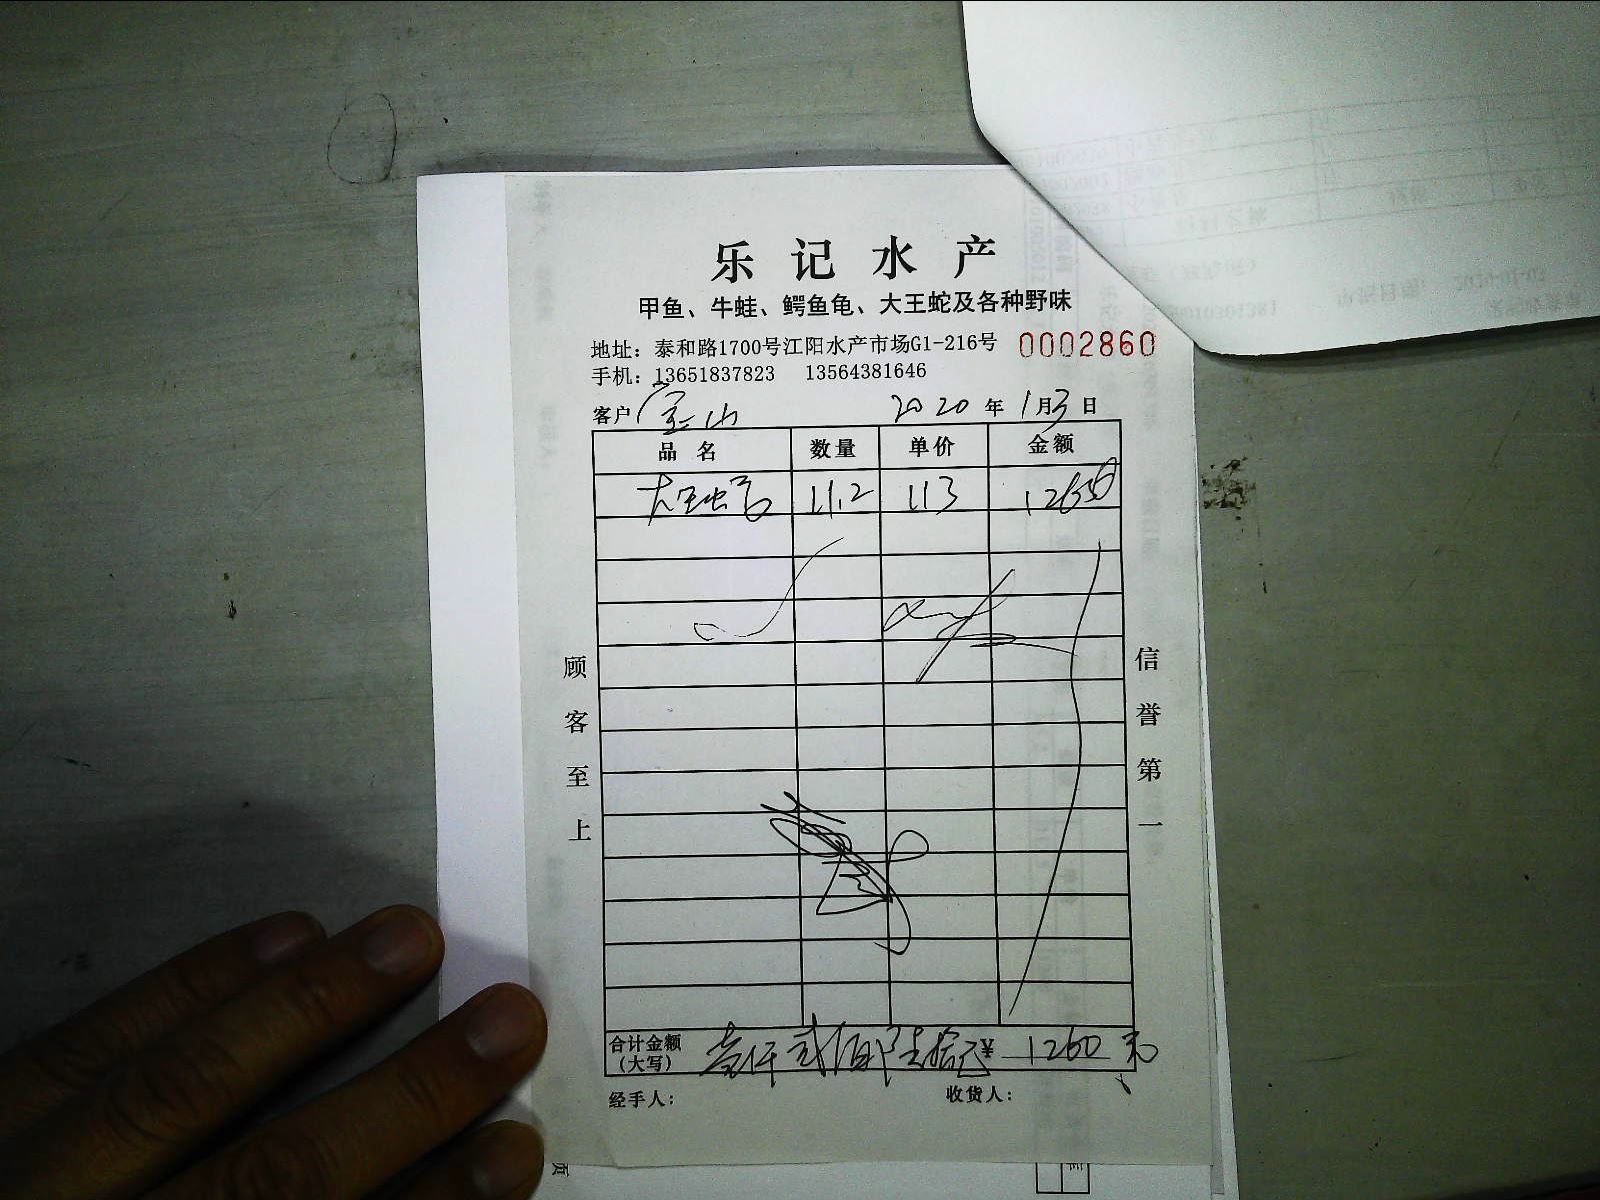 乐记水产
甲鱼、牛蛙、鳄鱼龟、大王蛇及各种野味
地址：泰和路1700号江阳水产市场G1-216号 0002860
手机：13651837823 13564381646
客户 宝山 2020 年 1 月 3 日
品名 数量 单价 金额
大王蛇 11.2 113
顾客至上
信誉第一
合计金额（大写） 壹仟贰佰陆拾元 ¥ 1260 元
经手人： 收货人：
页